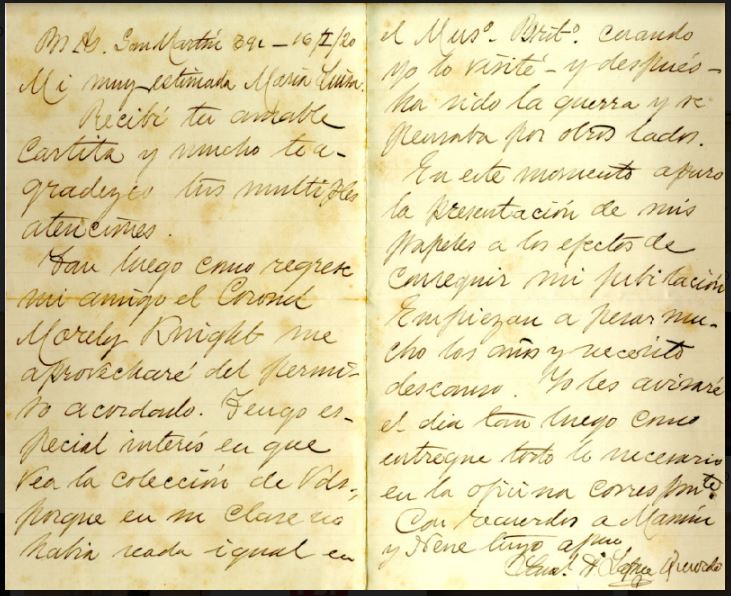 Bs As. San Martín 391 – 16/I/20
Mi muy estimada María Luisa.
Recibí tu amable
cartita y mucho te a-
gradezco tus multiples
atenciones.
Tan luego como regrese
mi amigo el Coronel
Morely Knight me
aprovecharé del permi-
so acordado. Tengo es-
pecial interés en que
vea la colección de Vds,
porque en su clase no
había nada igual en
el Museo. Brito. cuando
yo lo visité – y después –
ha sido la guerra y se
pensaba por otros lados.
En este momento apuro
la presentación de mis
papeles a los efectos de
conseguir mi jubilación
Empiezan a pesar mu-
cho los años y necesito
descanso. Yo les avisaré
el dia tan luego como
entregue todo lo necesario
en la oficina correspte.
Con recuerdos a Mamá
y Nene tuyo
Saml. A. Lafone Quevedo